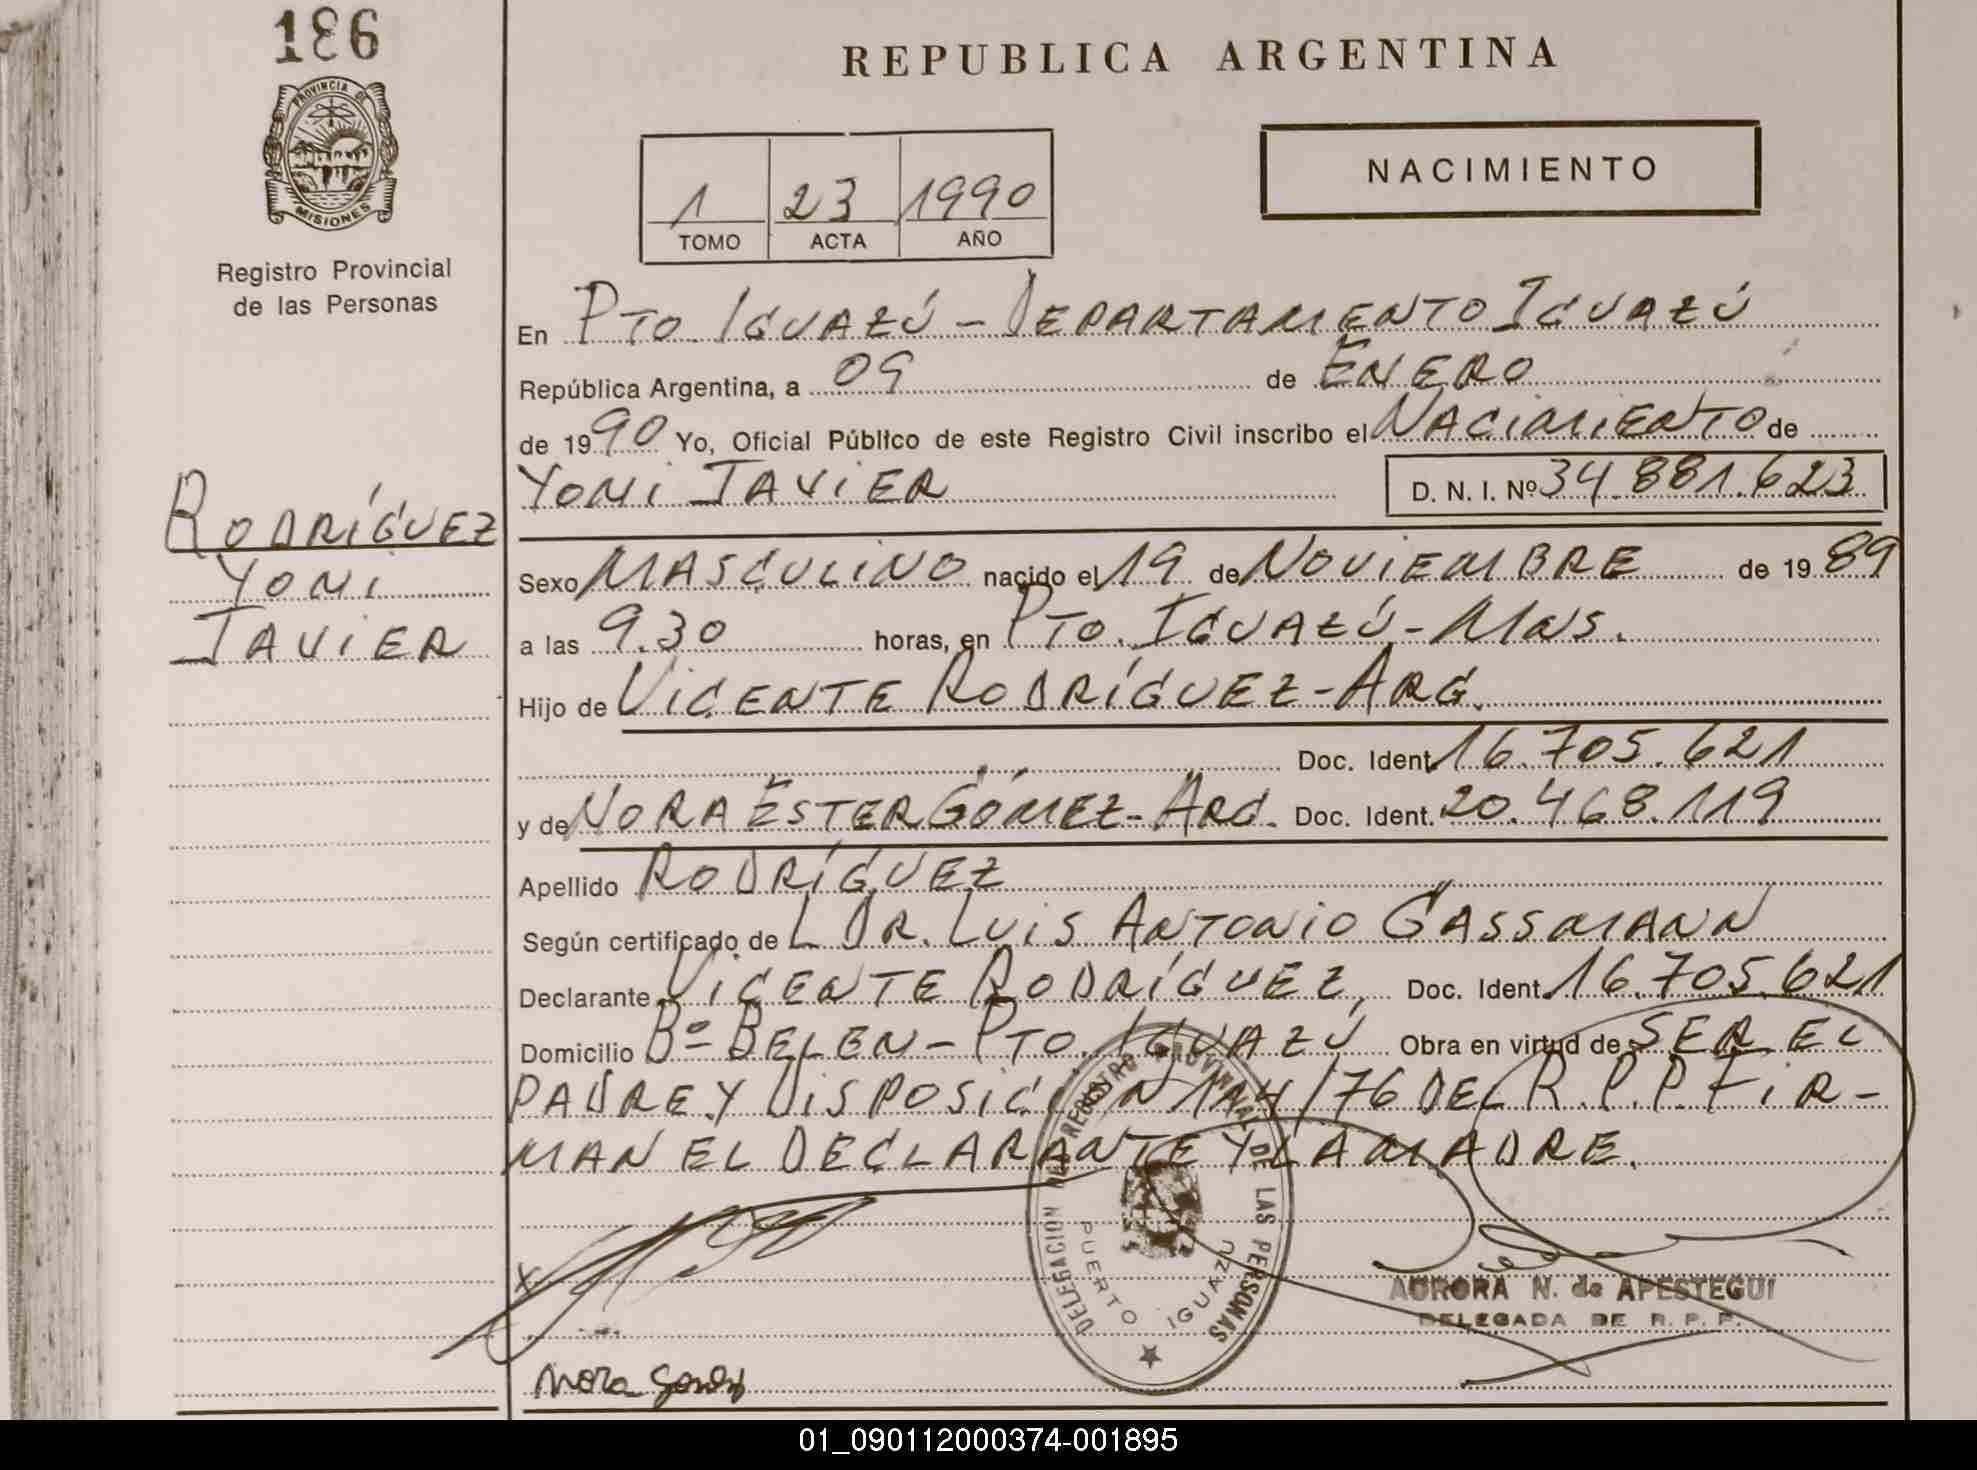 186
PROVINCIA DE
MISIONES
Registro Provincial
de las Personas
RODRÍGUEZ
YONI
JAVIER
REPUBLICA ARGENTINA
1 23 1990
TOMO ACTA AÑO
NACIMIENTO
En PTO. IGUAZÚ - DEPARTAMENTO IGUAZÚ
República Argentina, a 09 de ENERO
de 1990 Yo, Oficial Público de este Registro Civil inscribo el NACIMIENTO de
YONI JAVIER D. N. I. Nº 34.881.623
Sexo MASCULINO nacido el 19 de NOVIEMBRE de 1989
a las 9.30 horas, en PTO. IGUAZÚ - MNS.
Hijo de VICENTE RODRÍGUEZ - ARG.
Doc. Ident. 16.705.621
y de NORA ESTER GÓMEZ - ARG. Doc. Ident. 20.468.119
Apellido RODRÍGUEZ
Según certificado de L DR. LUIS ANTONIO GASSMANN
Declarante VICENTE RODRÍGUEZ, Doc. Ident. 16.705.621
Domicilio Bº BELEN - PTO. IGUAZÚ Obra en virtud de SER EL
PADRE Y DISPOSICION 144/76 DEL R.P.P. FIR-
MAN EL DECLARANTE Y LA MADRE.
DELEGACION DEL REGISTRO PROVINCIAL DE LAS PERSONAS
PUERTO IGUAZU
X
AURORA N. de APESTEGUI
DELEGADA DE R. P. P.
Nora
01_090112000374-001895